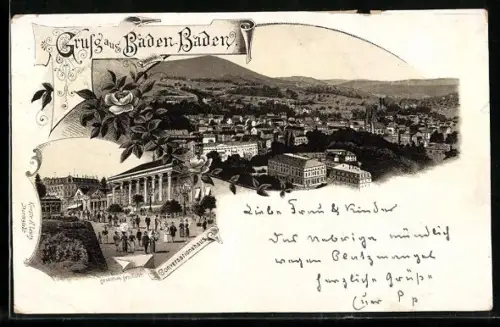 Gruß aus Baden-Baden.
Conversationshaus
Liebe Frau & Kinder
Das Uebrige mündlich
wegen Platzmangel
herzliche Grüße
Euer